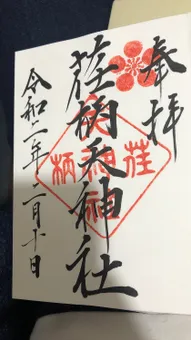 奉拝
荏柄天神社
令和二年二月十日
荏柄天神社